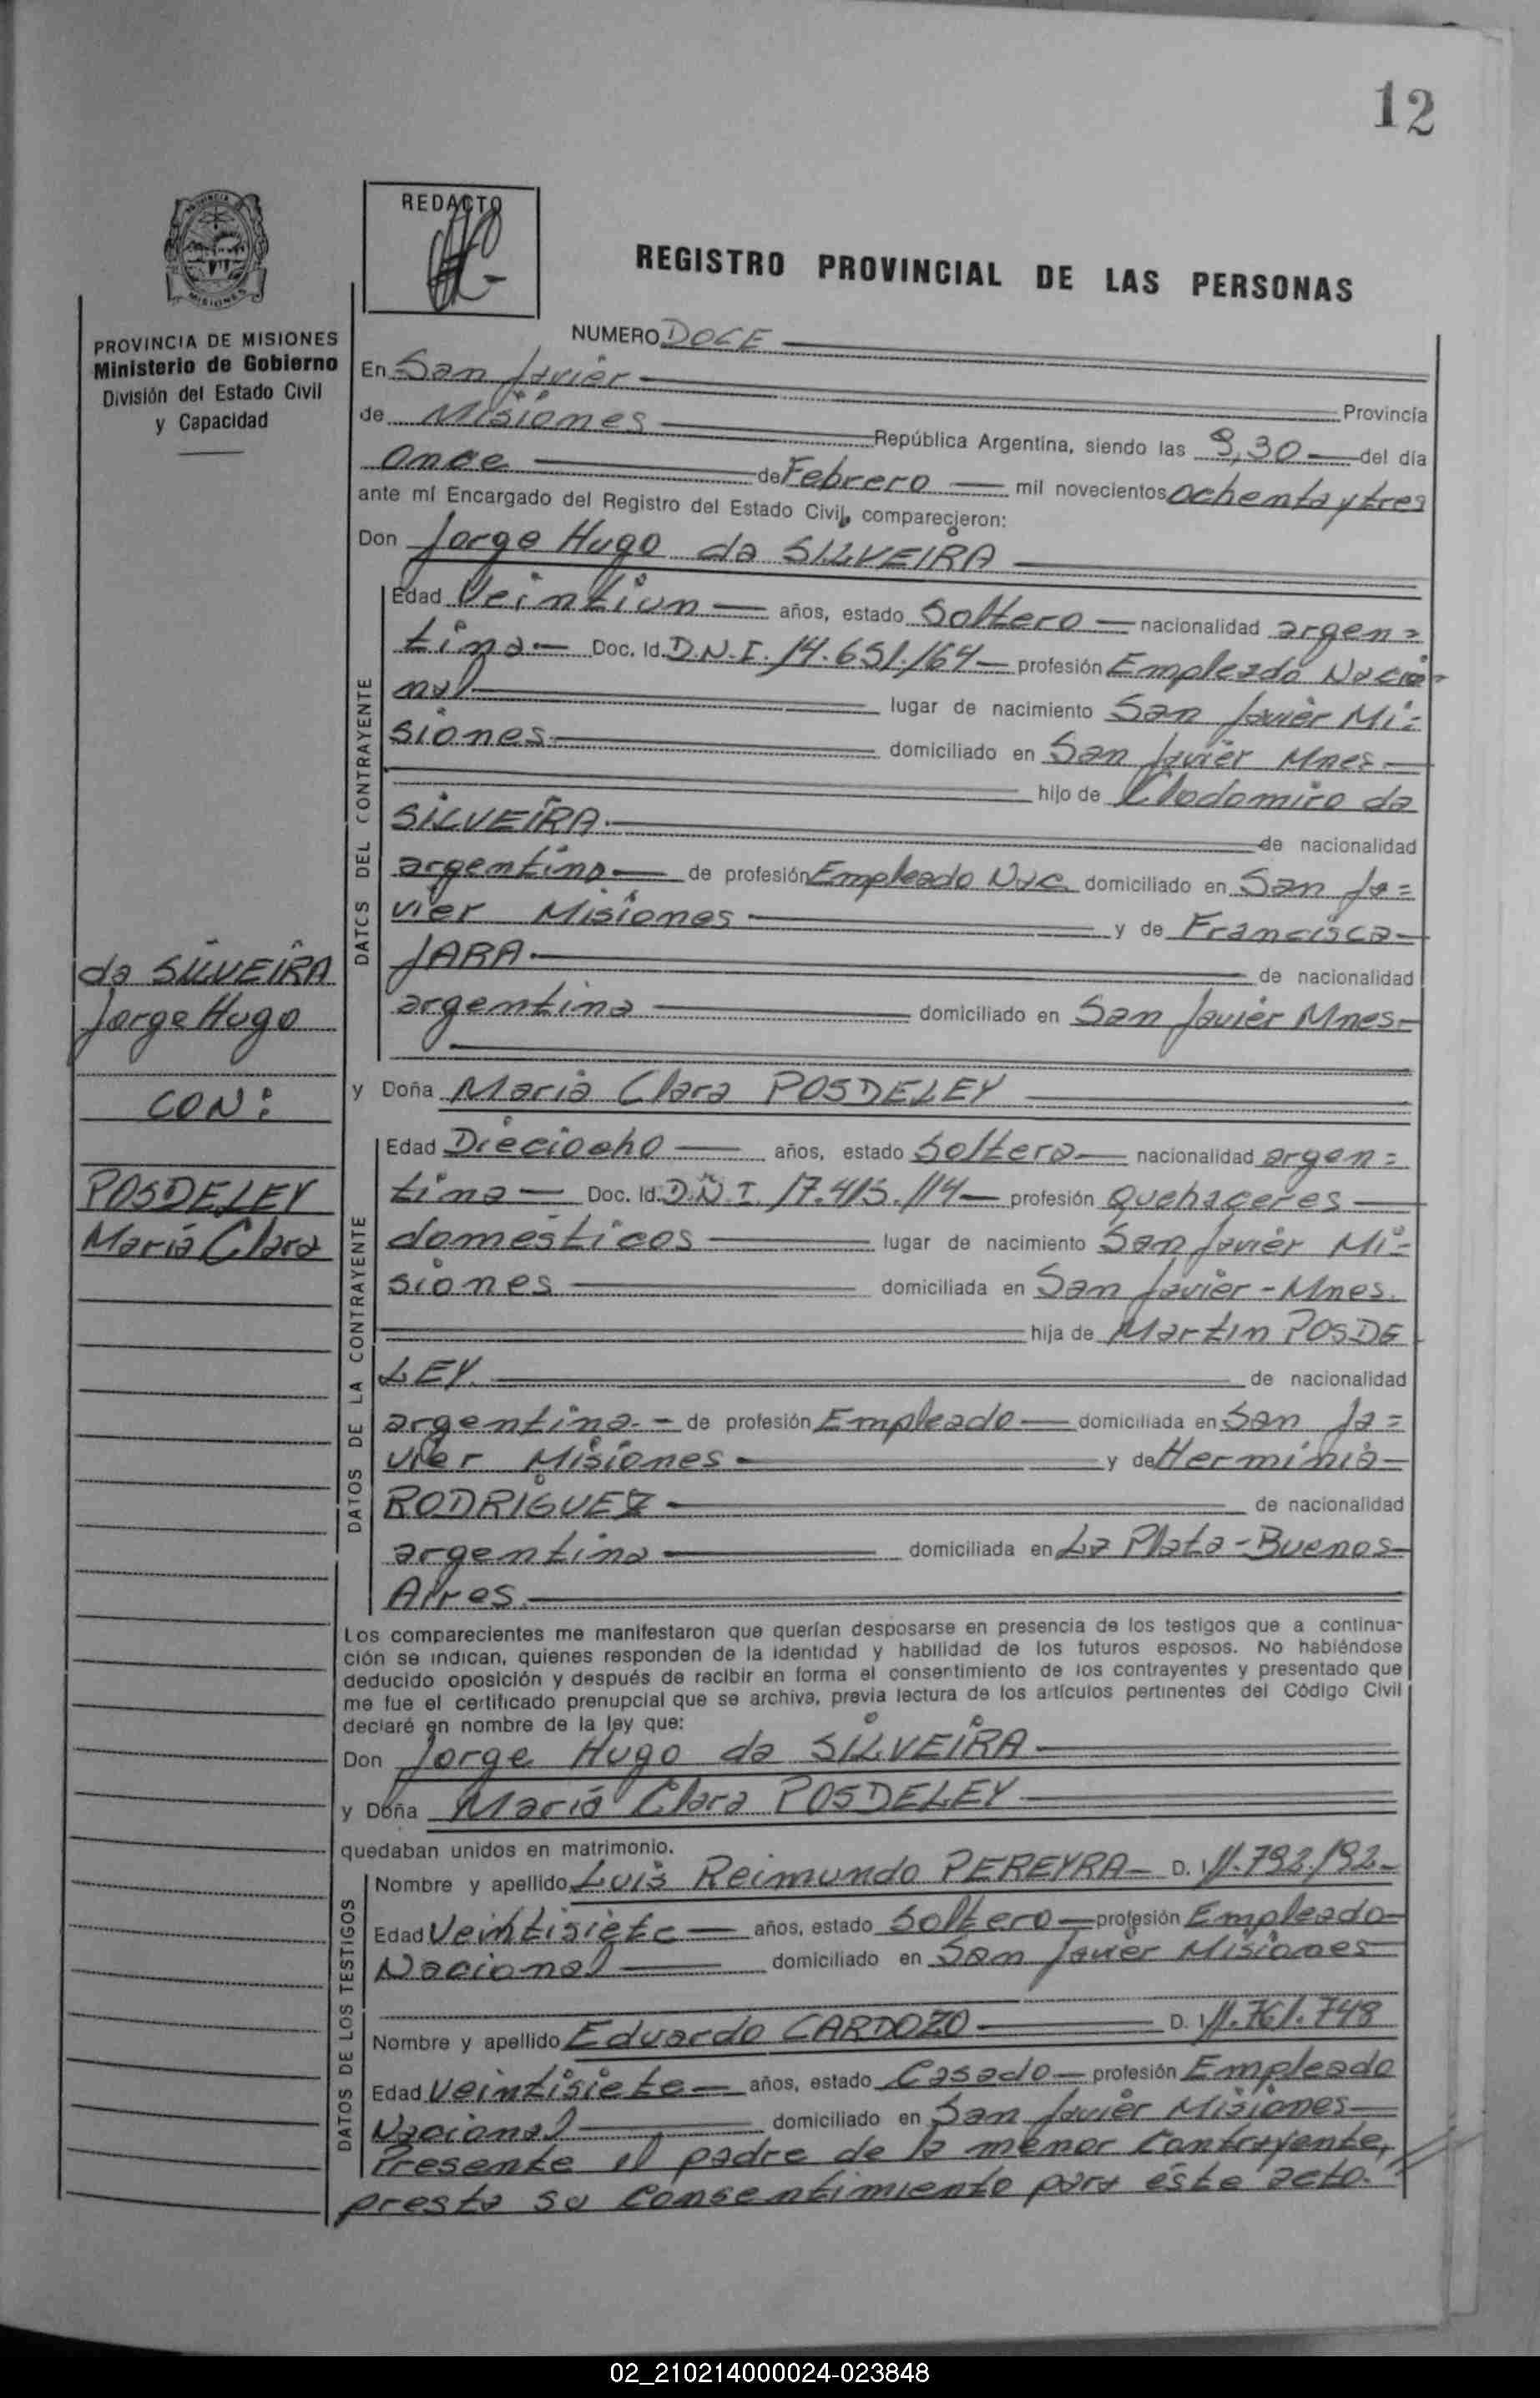 12
REDACTO
REGISTRO PROVINCIAL DE LAS PERSONAS
PROVINCIA DE MISIONES
Ministerio de Gobierno
División del Estado Civil
y Capacidad
NUMERO DOCE
En San Javier Provincia
de Misiones República Argentina, siendo las 9,30 del día
Once de Febrero mil novecientos ochenta y tres
ante mí Encargado del Registro del Estado Civil, comparecieron:
Don Jorge Hugo da SILVEIRA
DATOS DEL CONTRAYENTE
Edad Veintiun años, estado Soltero nacionalidad argen=
tina Doc. Id. D.N.I. 14.651.164 profesión Empleado Nacio-
nal lugar de nacimiento San Javier Mi=
siones domiciliado en San Javier Mnes
hijo de Clodomiro da
SILVEIRA de nacionalidad
argentina de profesión Empleado Nac domiciliado en San Ja=
vier Misiones y de Francisca
JARA de nacionalidad
argentina domiciliado en San Javier Mnes
da SILVEIRA
Jorge Hugo
CON:
POSDELEY
María Clara
y Doña María Clara POSDELEY
DATOS DE LA CONTRAYENTE
Edad Dieciocho años, estado Soltera nacionalidad argen=
tina Doc. Id. D.N.I. 17.415.114 profesión Quehaceres
domésticos lugar de nacimiento San Javier Mi=
siones domiciliada en San Javier - Mnes.
hija de Martin POSDE
LEY. de nacionalidad
argentina. de profesión Empleado domiciliada en San Ja=
vier Misiones y de Herminia
RODRIGUEZ de nacionalidad
argentina domiciliada en La Plata - Buenos
Aires.
Los comparecientes me manifestaron que querían desposarse en presencia de los testigos que a continua-
ción se indican, quienes responden de la identidad y habilidad de los futuros esposos. No habiéndose
deducido oposición y después de recibir en forma el consentimiento de los contrayentes y presentado que
me fue el certificado prenupcial que se archiva, previa lectura de los artículos pertinentes del Código Civil
declaré en nombre de la ley que:
Don Jorge Hugo da SILVEIRA
y Doña María Clara POSDELEY
quedaban unidos en matrimonio.
DATOS DE LOS TESTIGOS
Nombre y apellido Luis Reimundo PEREYRA D. I 11.792.192
Edad Veintisiete años, estado Soltero profesión Empleado
Nacional domiciliado en San Javier Misiones
Nombre y apellido Eduardo CARDOZO D. I 11.761.748
Edad Veintisiete años, estado Casado profesión Empleado
Nacional domiciliado en San Javier Misiones
Presente el padre de la menor Contrayente,
presta su Consentimiento para éste acto.
02_210214000024-023848